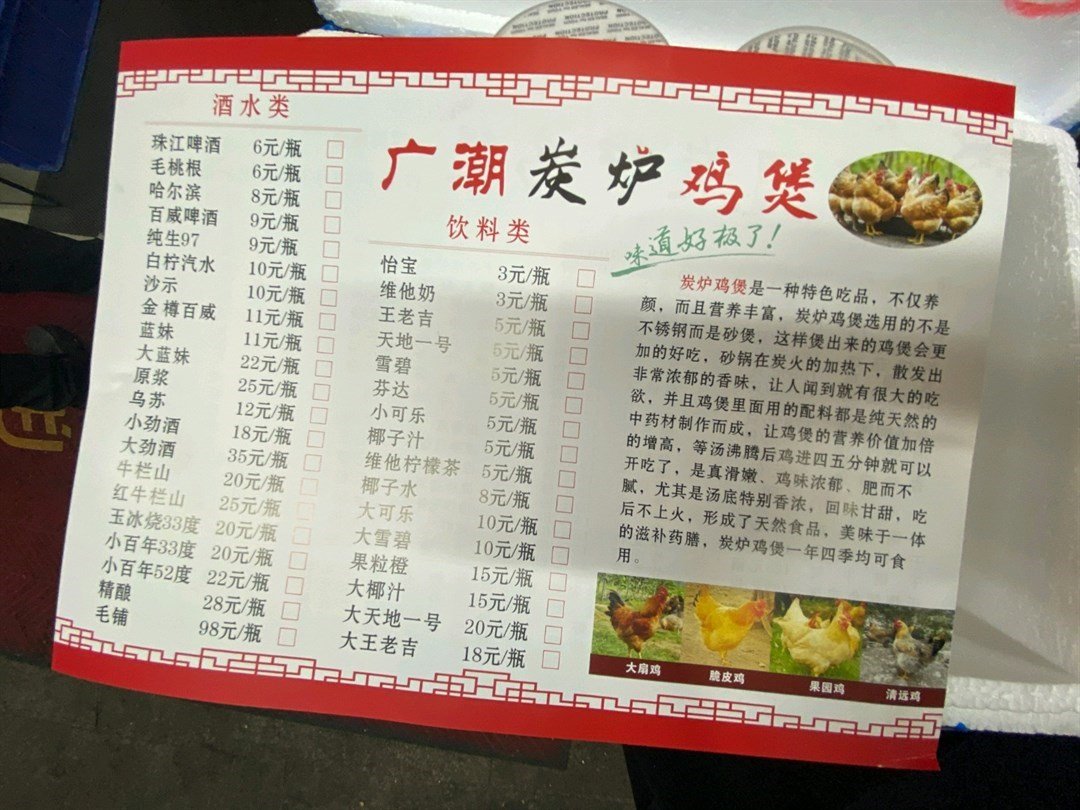 酒水类
珠江啤酒 6元/瓶 □
毛桃根 6元/瓶 □
哈尔滨 8元/瓶 □
百威啤酒 9元/瓶 □
纯生97 9元/瓶 □
白柠汽水 10元/瓶 □
沙示 10元/瓶 □
金樽百威 11元/瓶 □
蓝妹 11元/瓶 □
大蓝妹 22元/瓶 □
原浆 25元/瓶 □
乌苏 12元/瓶 □
小劲酒 18元/瓶 □
大劲酒 35元/瓶 □
牛栏山 20元/瓶 □
红牛栏山 25元/瓶 □
玉冰烧33度 20元/瓶 □
小百年33度 20元/瓶 □
小百年52度 22元/瓶 □
精酿 28元/瓶 □
毛铺 98元/瓶 □
广潮炭炉鸡煲
饮料类
怡宝 3元/瓶 □
维他奶 3元/瓶 □
王老吉 5元/瓶 □
天地一号 5元/瓶 □
雪碧 5元/瓶 □
芬达 5元/瓶 □
小可乐 5元/瓶 □
椰子汁 5元/瓶 □
维他柠檬茶 5元/瓶 □
椰子水 8元/瓶 □
大可乐 10元/瓶 □
大雪碧 10元/瓶 □
果粒橙 15元/瓶 □
大椰汁 15元/瓶 □
大天地一号 20元/瓶 □
大王老吉 18元/瓶 □
味道好极了!
炭炉鸡煲是一种特色吃品，不仅养
颜，而且营养丰富，炭炉鸡煲选用的不是
不锈钢而是砂煲，这样煲出来的鸡煲会更
加的好吃，砂锅在炭火的加热下，散发出
非常浓郁的香味，让人闻到就有很大的吃
欲，并且鸡煲里面用的配料都是纯天然的
中药材制作而成，让鸡煲的营养价值加倍
的增高，等汤沸腾后鸡进四五分钟就可以
开吃了，是真滑嫩、鸡味浓郁、肥而不
腻，尤其是汤底特别香浓，回味甘甜，吃
后不上火，形成了天然食品，美味于一体
的滋补药膳，炭炉鸡煲一年四季均可食
用。
大扇鸡 脆皮鸡 果园鸡 清远鸡